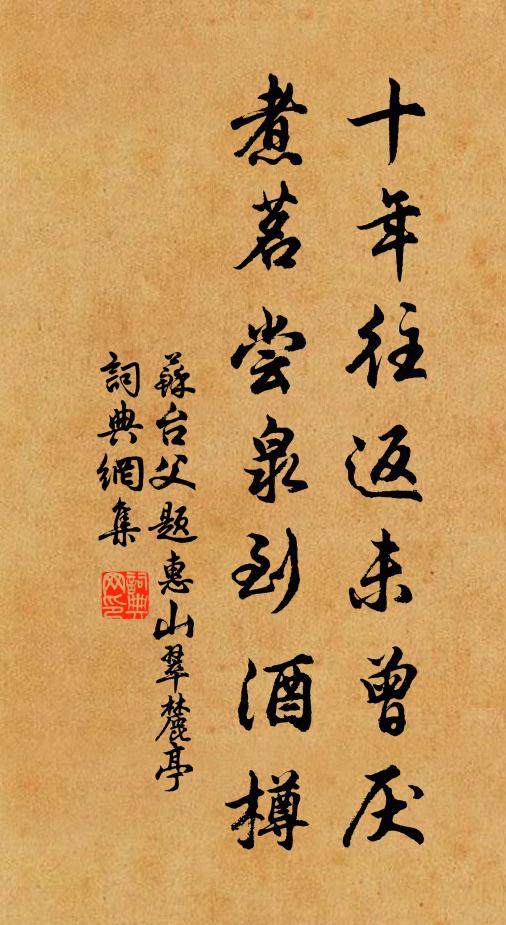 十年往返未曾厌
煮茗尝泉到酒樽
蘇台父题惠山翠麓亭
詞典網集
詞典网印